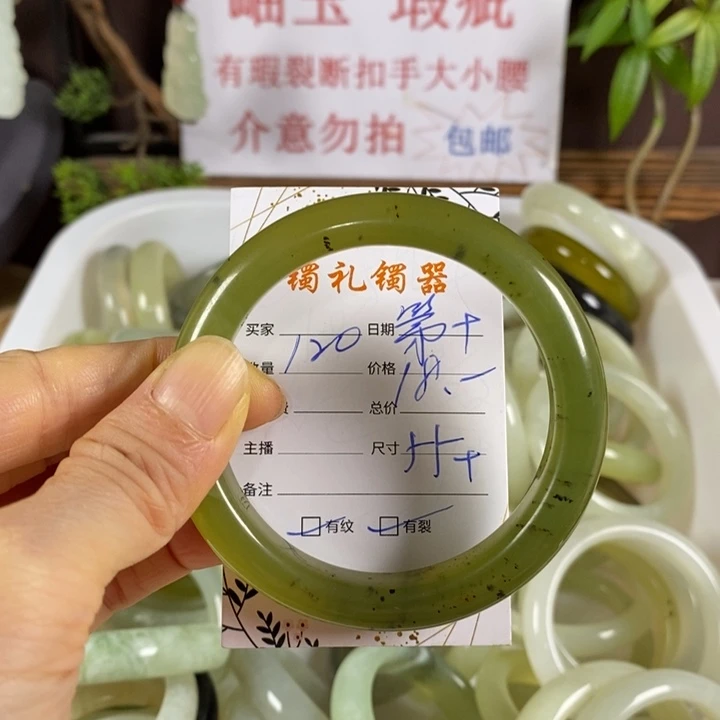 岫玉 瑕疵
有瑕裂断扣手大小腰
介意勿拍 包邮
镯礼镯器
买家 120 日期 第十
数量 价格 18.一
总价
主播 尺寸
备注
有纹 有裂